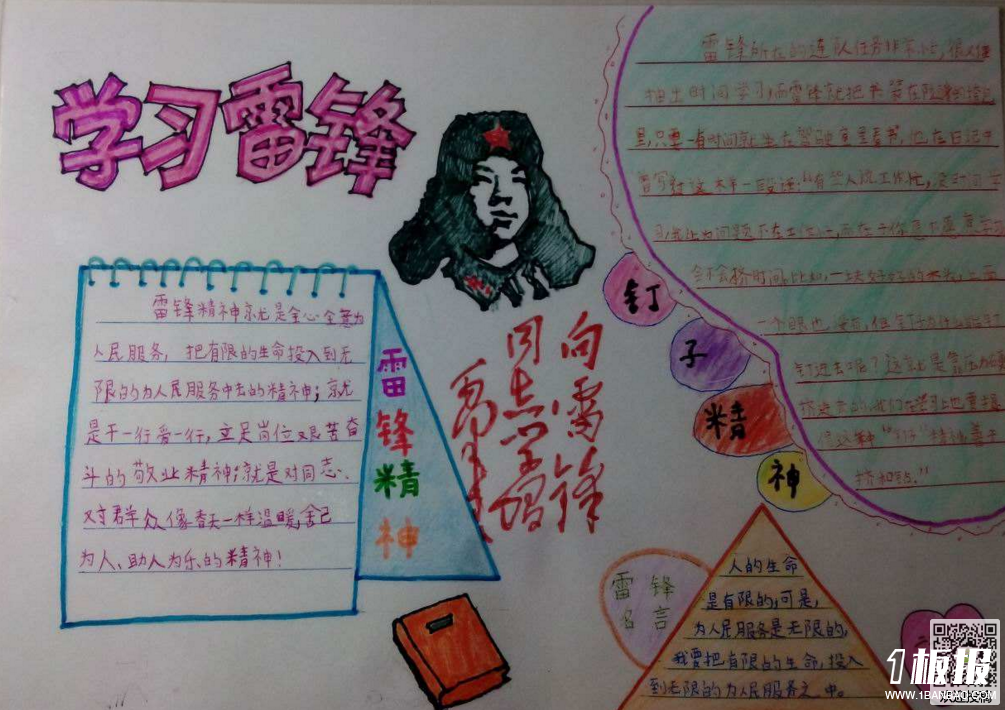 学习雷锋
雷锋所在的连队任务非常忙，很难
抽出时间学习，而雷锋就把书装在随身的挎包
里，只要一有时间就坐在驾驶室里看书，他在日记中
曾写过这样一段话：“有些人说工作忙，没时间学
习，我认为问题不在工作忙，而在于你愿不愿意学习，
会不会挤时间。比如，一块好好的木头，上面
一个眼也没有，但钉子为什么能
钉进去呢？这就是靠压力硬
挤进去的，我们在学习上也要提
倡这种“钉子”精神，善于
挤和钻。”
钉
子
精
神
雷锋精神就是全心全意为
人民服务，把有限的生命投入到无
限的为人民服务中去的精神；就
是干一行爱一行，立足岗位艰苦奋
斗的敬业精神；就是对同志、
对群众像春天一样温暖，舍己
为人、助人为乐的精神！
雷
锋
精
神
向雷锋
同志学习
毛泽东
雷锋
名言
人的生命
是有限的，可是，
为人民服务是无限的，
我要把有限的生命，投入
到无限的为人民服务之中。
1板报
WWW.1BANBAO.COM
欢迎投稿